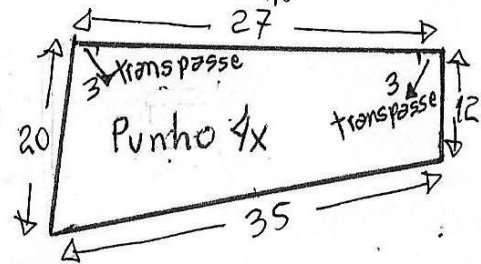 27
3 transpasse
3
transpasse
20
Punho 4x
12
35